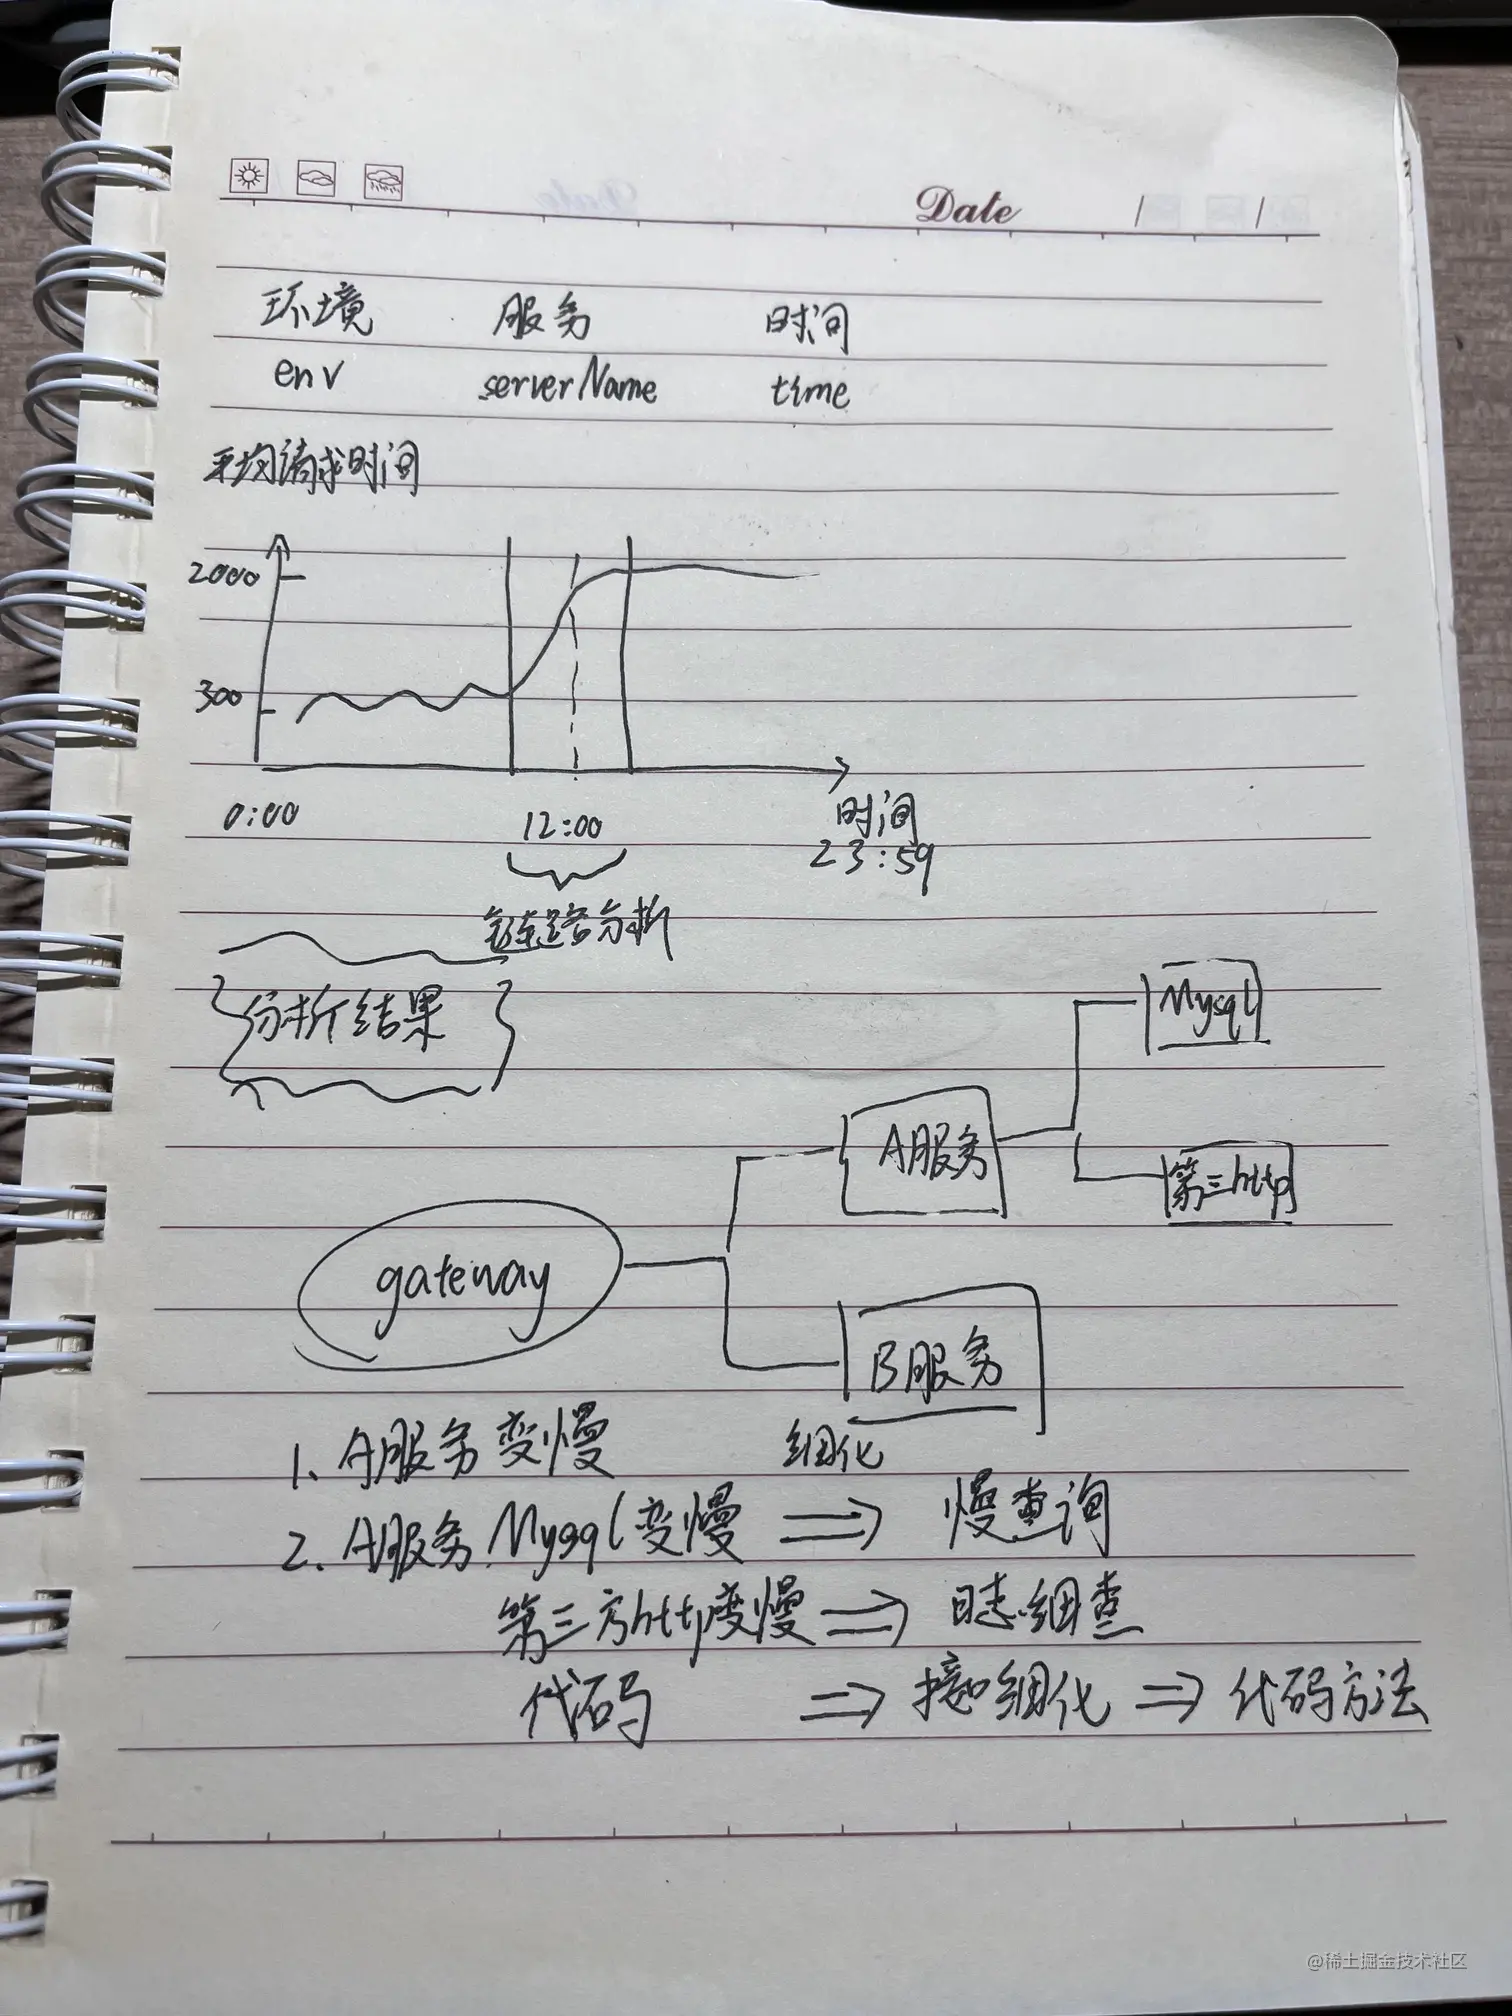 Date / /
环境 服务 时间
env serverName time
平均请求时间
2000
300
0:00 12:00 时间
23:59
链路分析
分析结果
Mysql
A服务
第三http
gateway
B服务
1、A服务变慢 细化
2、A服务 Mysql变慢 ⇒ 慢查询
第三方http变慢 ⇒ 日志细查
代码 ⇒ 接口细化 ⇒ 代码方法
@稀土掘金技术社区